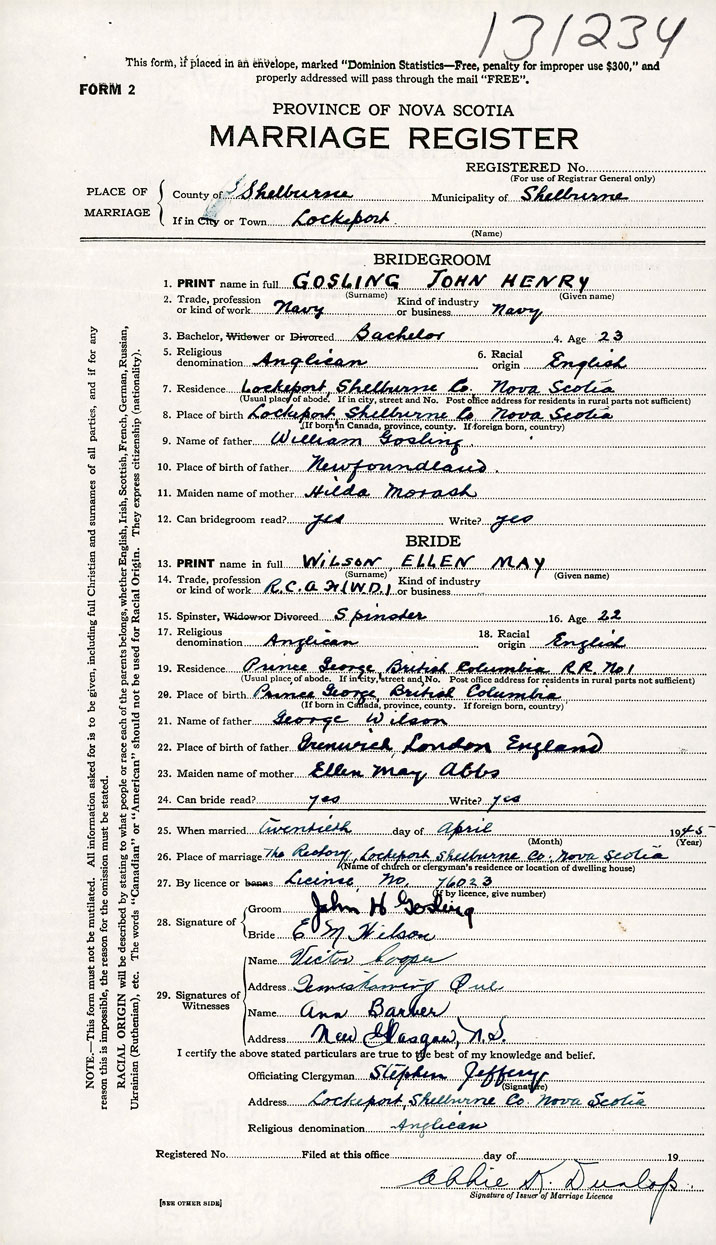 131234
This form, if placed in an envelope, marked "Dominion Statistics—Free, penalty for improper use $300," and
properly addressed will pass through the mail "FREE".
FORM 2
PROVINCE OF NOVA SCOTIA
MARRIAGE REGISTER
REGISTERED No.
(For use of Registrar General only)
PLACE OF MARRIAGE
County of Shelburne Municipality of Shelburne
If in City or Town Lockeport
(Name)
BRIDEGROOM
1. PRINT name in full GOSLING JOHN HENRY
(Surname) (Given name)
2. Trade, profession or kind of work Navy Kind of industry or business Navy
3. Bachelor, Widower or Divorced Bachelor 4. Age 23
5. Religious denomination Anglican 6. Racial origin English
7. Residence Lockeport, Shelburne Co. Nova Scotia
(Usual place of abode. If in city, street and No. Post office address for residents in rural parts not sufficient)
8. Place of birth Lockeport Shelburne Co Nova Scotia
(If born in Canada, province, county. If foreign born, country)
9. Name of father William Gosling
10. Place of birth of father Newfoundland.
11. Maiden name of mother Hilda Morash
12. Can bridegroom read? yes Write? yes
BRIDE
13. PRINT name in full WILSON ELLEN MAY
(Surname) (Given name)
14. Trade, profession or kind of work R.C.A.F. (W.D.) Kind of industry or business
15. Spinster, Widow or Divorced Spinster 16. Age 22
17. Religious denomination Anglican 18. Racial origin English
19. Residence Prince George British Columbia R.R. No 1
(Usual place of abode. If in city, street and No. Post office address for residents in rural parts not sufficient)
20. Place of birth Prince George, British Columbia
(If born in Canada, province, county. If foreign born, country)
21. Name of father George Wilson
22. Place of birth of father Grenwich London England
23. Maiden name of mother Ellen May Abbs
24. Can bride read? yes Write? yes
25. When married twentieth day of April 1945
(Month) (Year)
26. Place of marriage The Rectory, Lockeport Shelburne Co. Nova Scotia
(Name of church or clergyman's residence or location of dwelling house)
27. By licence or banns License, No. 76023
(If by licence, give number)
28. Signature of
Groom John H Gosling
Bride E M Wilson
29. Signatures of Witnesses
Name Victor Cooper
Address Temiskaming Que
Name Ann Barber
Address New Glasgow, N.S.
I certify the above stated particulars are true to the best of my knowledge and belief.
Officiating Clergyman Stephen Jeffery
(Signature)
Address Lockeport, Shelburne Co. Nova Scotia
Religious denomination Anglican
Registered No. Filed at this office day of 19
Abbie K. Dunlop.
Signature of Issuer of Marriage Licence
[SEE OTHER SIDE]
NOTE.—This form must not be mutilated. All information asked for is to be given, including full Christian and surnames of all parties, and if for any
reason this is impossible, the reason for the omission must be stated.
RACIAL ORIGIN will be described by stating to what people or race each of the parents belongs, whether English, Irish, Scottish, French, German, Russian,
Ukrainian (Ruthenian), etc. The words "Canadian" or "American" should not be used for Racial Origin. They express citizenship (nationality).